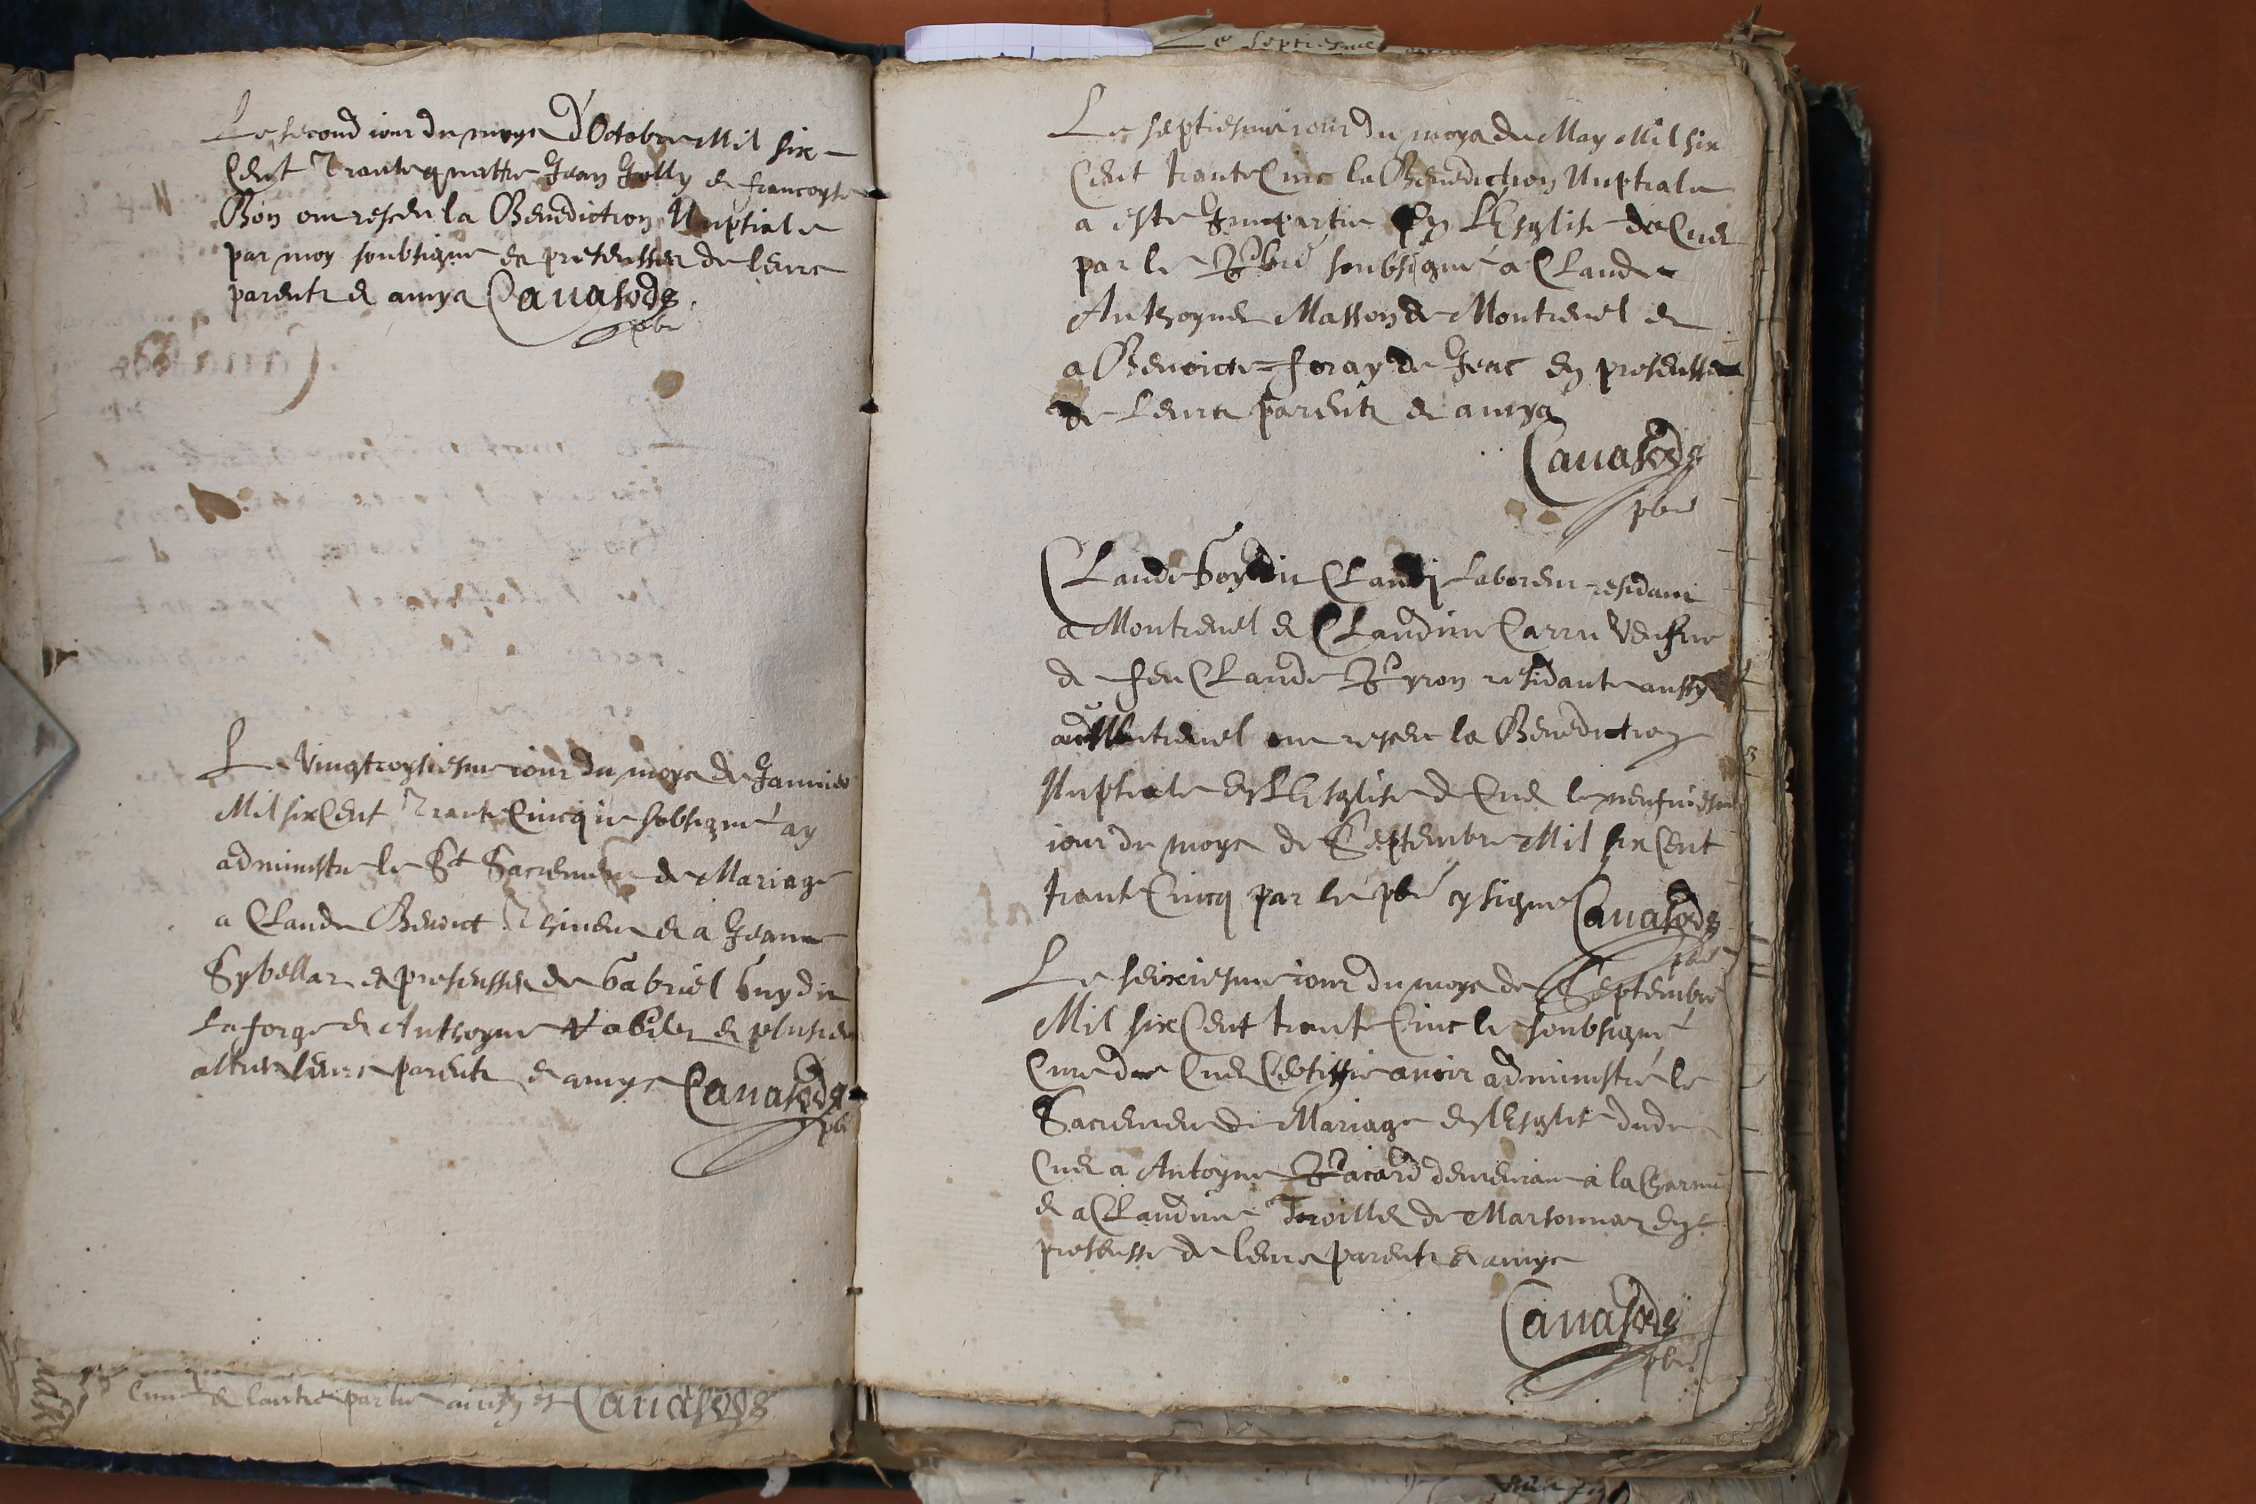 Le second iour du moys d'Octobre Mil six
Cent Trante quattre Jean Jolly et francoyse
Bon ont reseu la Benediction Nuptiale
par moy soubsigne en presensse de leurs
parents et amys Cauasods
pbr
Le Vingtroysiesme iour du moys de Januier
Mil six Cent Trante Cincq ie sobsigné ay
administre le St Sacrement de Mariage
a Claude Benoict et a Jeanne
Sybellar en presensse de Gabriel Guy dit
Laforge et Anthoyne et plusieurs
altres leurs parents et amys Cauasods
pbr
Cure et lautre partie ainsy est Cauasods
Le septiesme
Le septiesme iour du moys de May Mil six
Cent trante Cinc la Benediction Nuptiale
a este Impartie en L'Esglise de Cuet
par le Pbre soubsigné a Claude
Anthoyne Masson de Montreuel et
a Benoicte foray de Jeac en presensse
de Leurs parents et amys
Cauasods
pbr
Claude Goy dit Claudy Laboreur residant
a Montreuel et Claudine Carru Vefue
de feu Claude Pyron residante aussy
audit Montreuel ont reseu la Benediction
Nuptiale en L'Esglise de Cuet le neufuiesme
iour du moys de Septembre Mil six Cent
trante Cincq par le pbre cy signe Cauasods
pbr
Le seiziesme iour du moys de Septembre
Mil six Cent trante Cinc le soubsigné
Cure de Cuet Certiffie auoir administré le
Sacrement de Mariage en l'Esglise dudit
Cuet a Antoyne Pacard demeurant a la Charme
et a Claudine Troillet de Marsonnaz en
presensse de leurs parents et amys
Cauasods
pbr